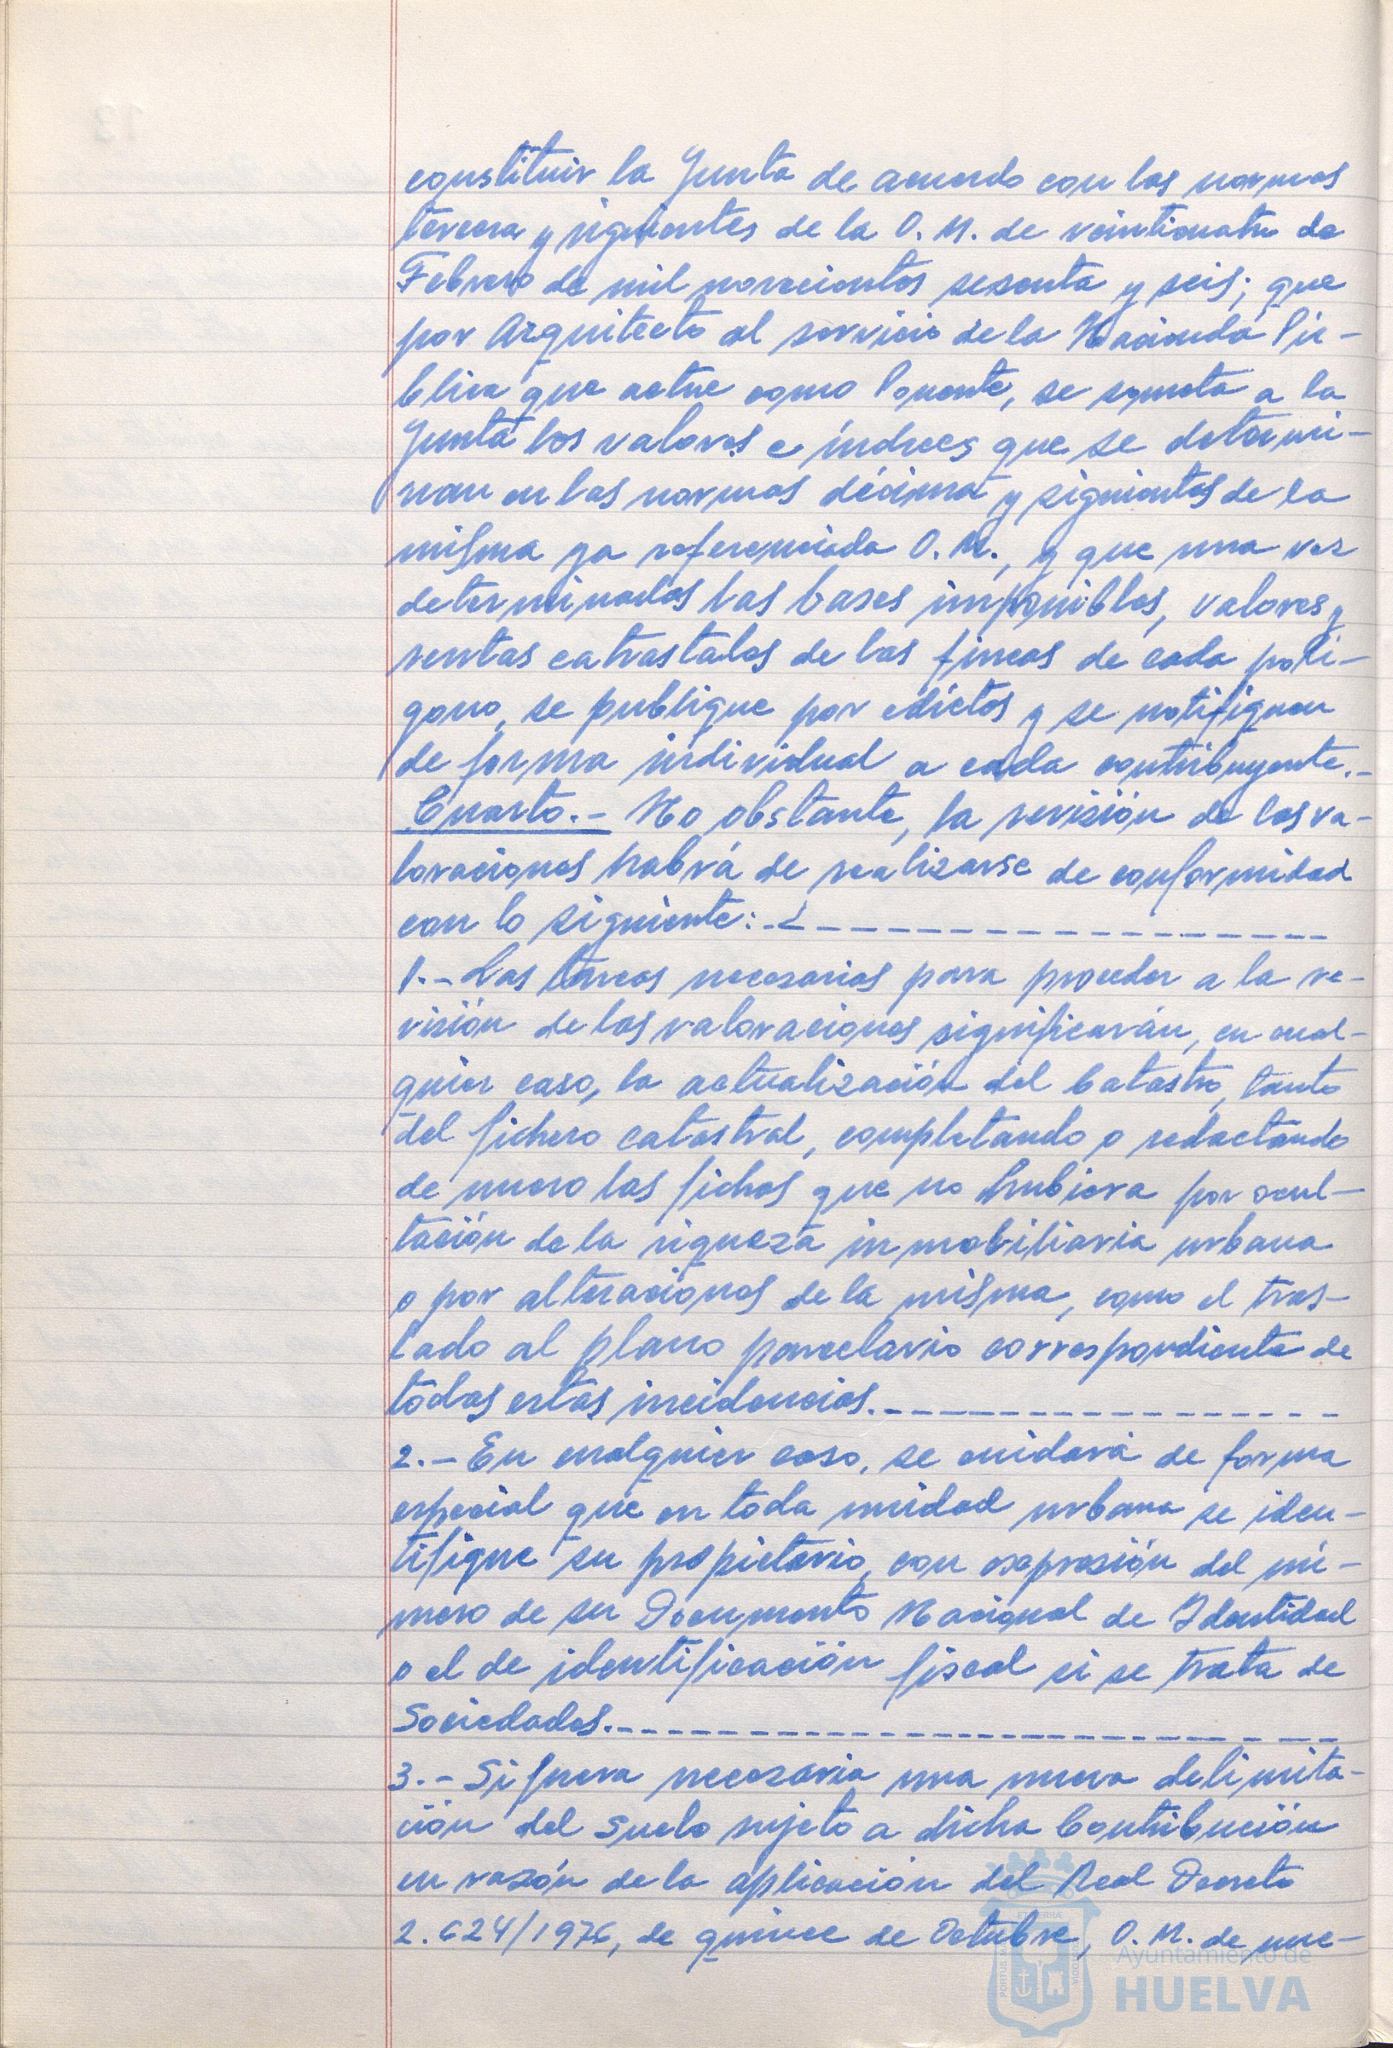 constituir la Junta de acuerdo con las normas
tercera y siguientes de la O. M. de veinticuatro de
Febrero de mil novecientos sesenta y seis; que
por Arquitecto al servicio de la Hacienda Pú-
blica que actue como Ponente, se someta a la
Junta los valores e índices que se determi-
nan en las normas décima y siguientes de la
misma ya referenciada O. M., y que una vez
determinadas las bases imponibles, valores y
rentas catrastales de las fincas de cada polí-
gono, se publique por edictos y se notifiquen
de forma individual a cada contribuyente.-
Cuarto.- No obstante, la revisión de las va-
loraciones habrá de realizarse de conformidad
con lo siguiente:
1.- Las tareas necesarias para proceder a la re-
visión de las valoraciones significarán, en cual-
quier caso, la actualización del Catastro, tanto
del fichero catastral, completando o redactando
de nuevo las fichas que no hubiera por ocul-
tación de la riqueza inmobiliaria urbana
o por alteraciones de la misma, como el tras-
lado al plano parcelario correspondiente de
todas estas incidencias.
2.- En cualquier caso, se cuidará de forma
especial que en toda unidad urbana se iden-
tifique su propietario, con expresión del nú-
mero de su Documento Nacional de Identidad
o el de identificación fiscal si se trata de
Sociedades.
3.- Si fuera necesaria una nueva delimita-
ción del suelo sujeto a dicha Contribución
en razón de la aplicación del Real Decreto
2.624/1976, de quince de Octubre, O. M. de nue-
Ayuntamiento de
HUELVA